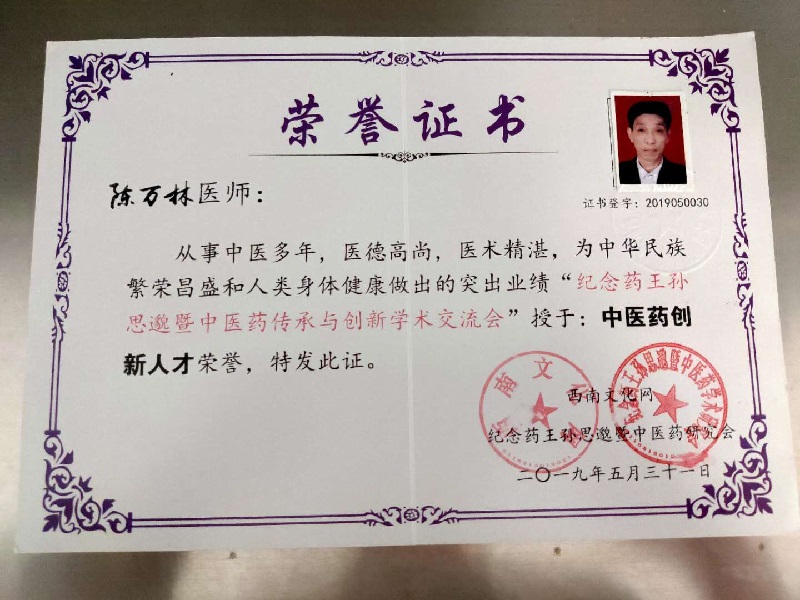 荣誉证书
证书登字：2019050030
陈万林医师：
从事中医多年，医德高尚，医术精湛，为中华民族
繁荣昌盛和人类身体健康做出的突出业绩“纪念药王孙
思邈暨中医药传承与创新学术交流会”授于：中医药创
新人才荣誉，特发此证。
西南文化网
纪念药王孙思邈暨中医药研究会
二〇一九年五月三十一日